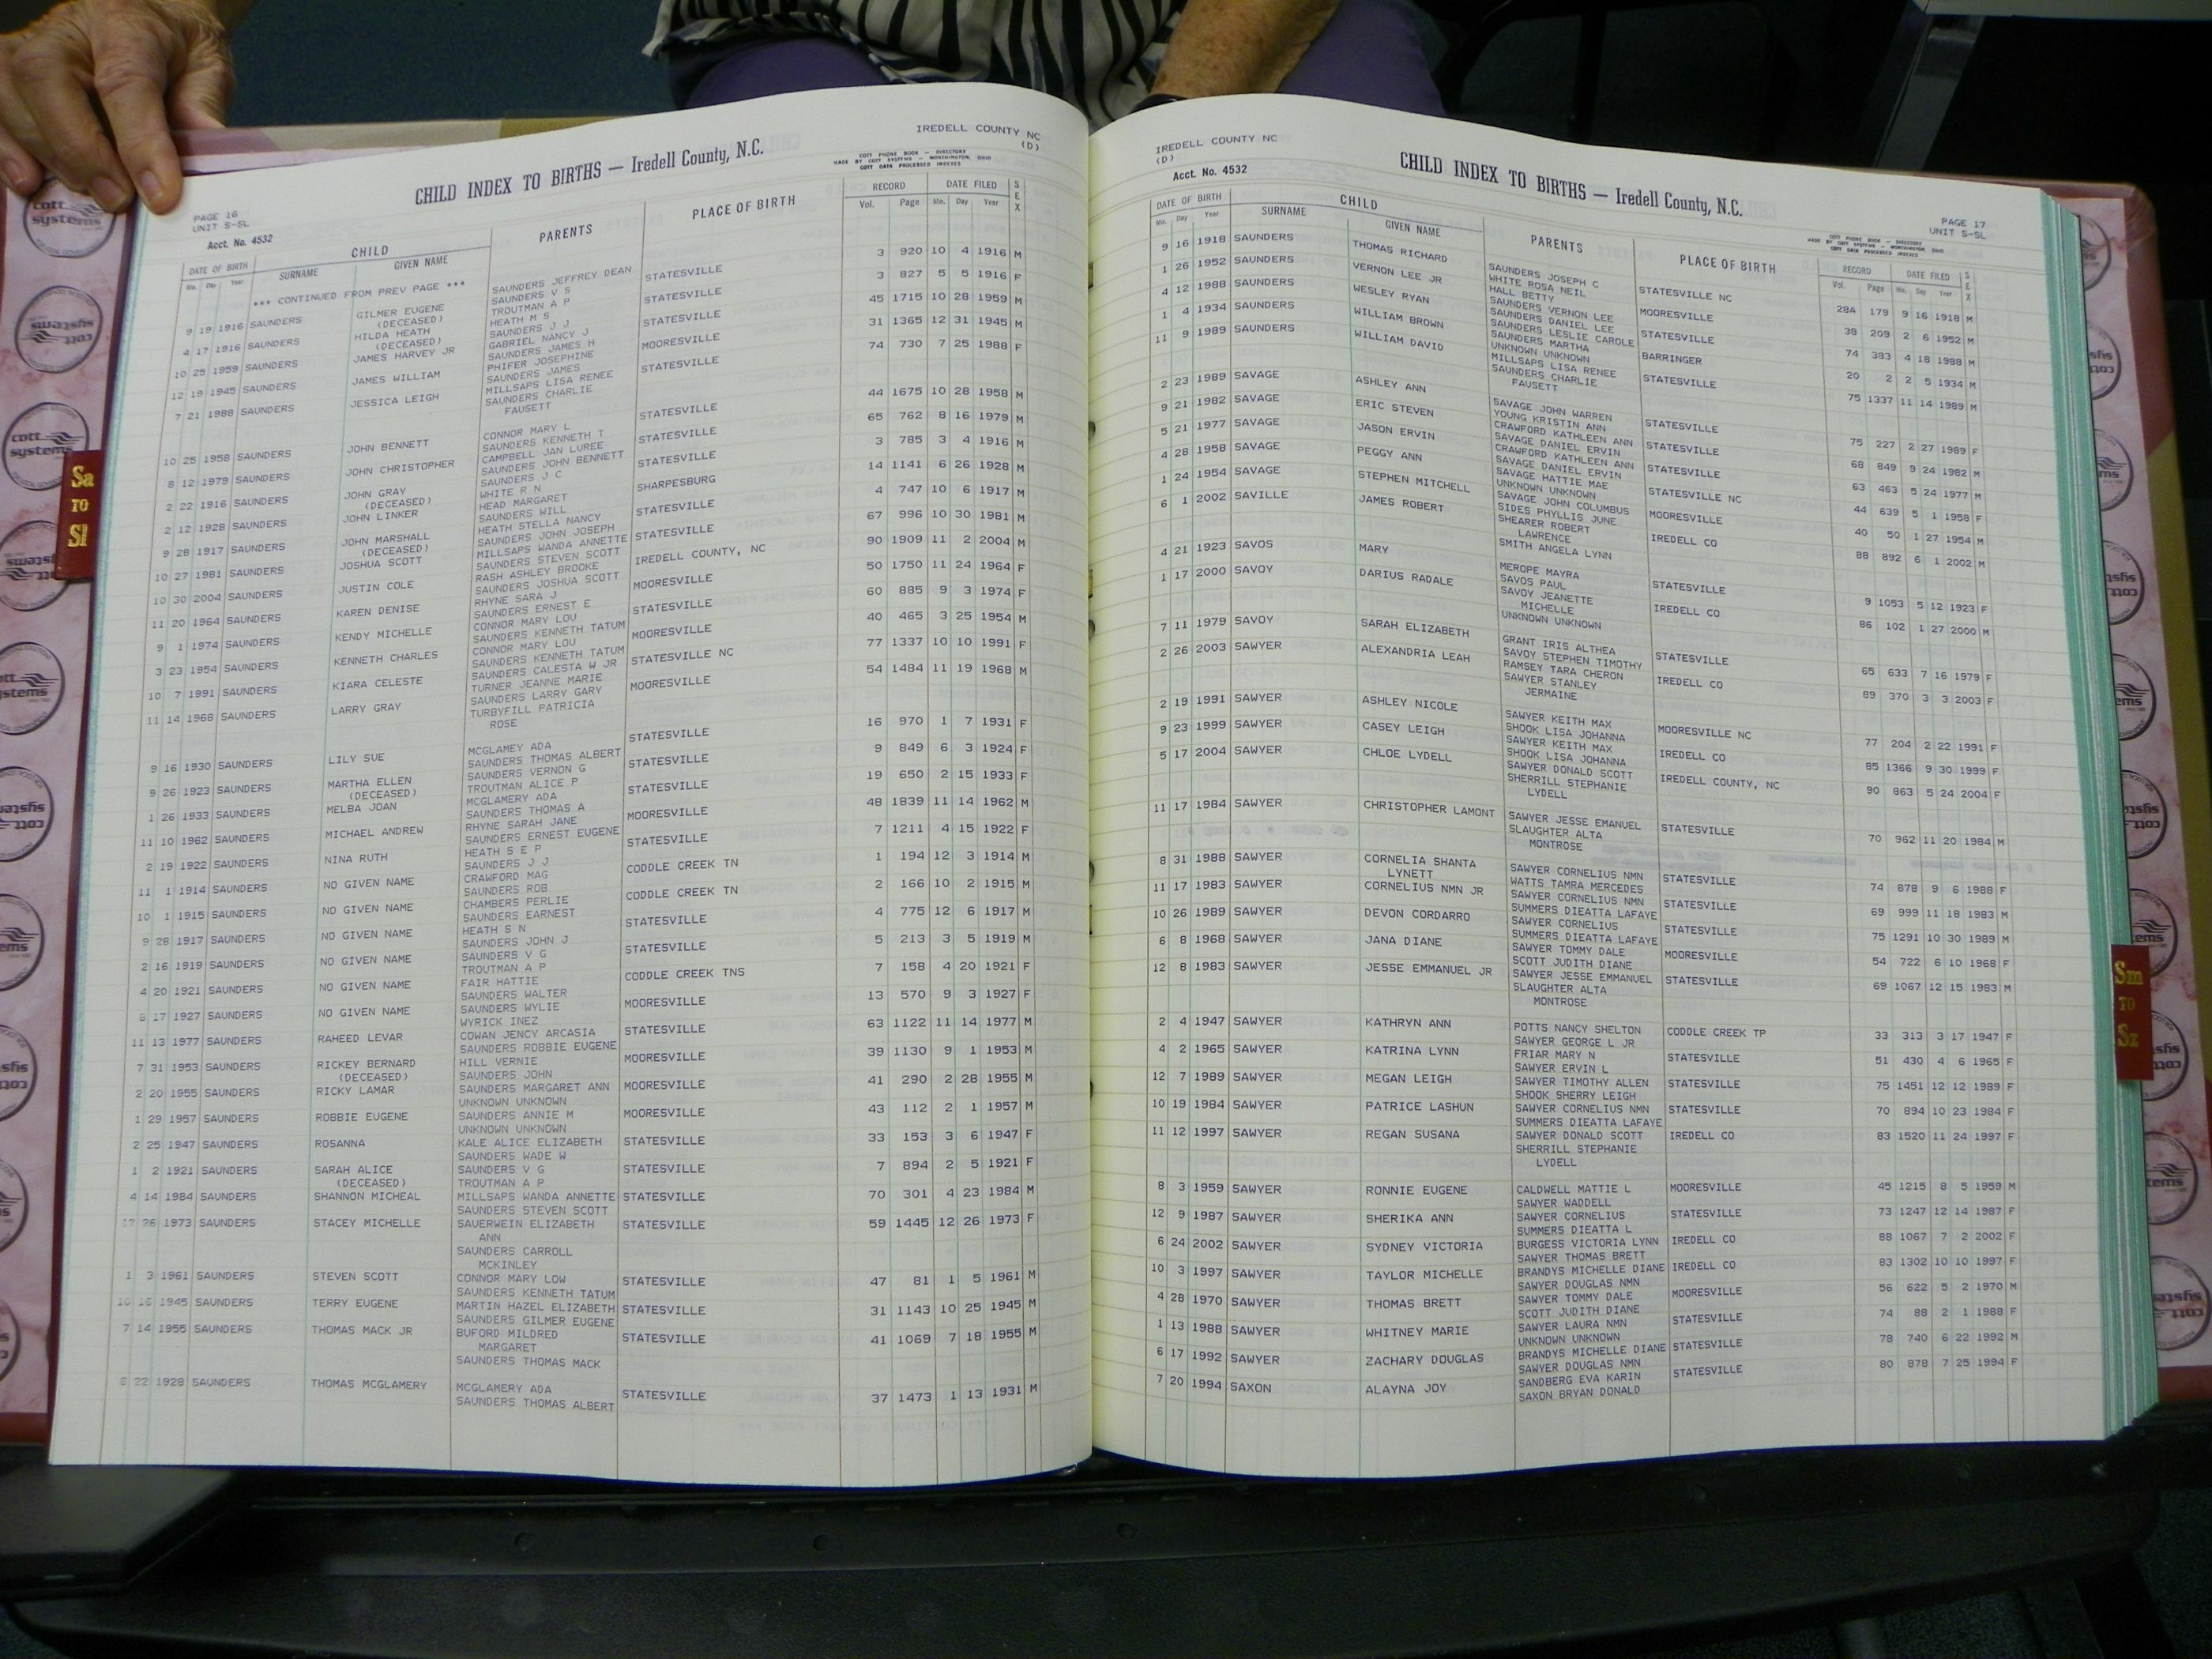 IREDELL COUNTY NC
(D)
CHILD INDEX TO BIRTHS — Iredell County, N.C.
COTT PHONE BOOK — DIRECTORY
MADE BY COTT SYSTEMS — WORTHINGTON, OHIO
COTT DATA PROCESSED INDEXES
PAGE 16
UNIT S-SL
Acct. No. 4532
DATE OF BIRTH CHILD PARENTS PLACE OF BIRTH RECORD DATE FILED SEX
Mo. Day Year SURNAME GIVEN NAME Vol. Page Mo. Day Year
*** CONTINUED FROM PREV PAGE *** SAUNDERS JEFFREY DEAN
9 19 1916 SAUNDERS GILMER EUGENE SAUNDERS V S STATESVILLE 3 920 10 4 1916 M
(DECEASED) TROUTMAN A P
4 17 1916 SAUNDERS HILDA HEATH HEATH M S STATESVILLE 3 827 5 5 1916 F
(DECEASED) SAUNDERS J J
10 25 1959 SAUNDERS JAMES HARVEY JR GABRIEL NANCY J STATESVILLE 45 1715 10 28 1959 M
SAUNDERS JAMES H
12 19 1945 SAUNDERS JAMES WILLIAM PHIFER JOSEPHINE MOORESVILLE 31 1365 12 31 1945 M
SAUNDERS JAMES
7 21 1988 SAUNDERS JESSICA LEIGH MILLSAPS LISA RENEE STATESVILLE 74 730 7 25 1988 F
SAUNDERS CHARLIE
FAUSETT
10 25 1958 SAUNDERS JOHN BENNETT CONNOR MARY L STATESVILLE 44 1675 10 28 1958 M
SAUNDERS KENNETH T
8 12 1979 SAUNDERS JOHN CHRISTOPHER CAMPBELL JAN LUREE STATESVILLE 65 762 8 16 1979 M
SAUNDERS JOHN BENNETT
2 22 1916 SAUNDERS JOHN GRAY SAUNDERS J C STATESVILLE 3 785 3 4 1916 M
(DECEASED) WHITE R N
2 12 1928 SAUNDERS JOHN LINKER HEAD MARGARET SHARPESBURG 14 1141 6 26 1928 M
SAUNDERS WILL
9 28 1917 SAUNDERS JOHN MARSHALL HEATH STELLA NANCY STATESVILLE 4 747 10 6 1917 M
(DECEASED) SAUNDERS JOHN JOSEPH
10 27 1981 SAUNDERS JOSHUA SCOTT MILLSAPS WANDA ANNETTE STATESVILLE 67 996 10 30 1981 M
SAUNDERS STEVEN SCOTT
10 30 2004 SAUNDERS JUSTIN COLE RASH ASHLEY BROOKE IREDELL COUNTY, NC 90 1909 11 2 2004 M
SAUNDERS JOSHUA SCOTT
11 20 1964 SAUNDERS KAREN DENISE RHYNE SARA J MOORESVILLE 50 1750 11 24 1964 F
SAUNDERS ERNEST E
9 1 1974 SAUNDERS KENDY MICHELLE CONNOR MARY LOU STATESVILLE 60 885 9 3 1974 F
SAUNDERS KENNETH TATUM
3 23 1954 SAUNDERS KENNETH CHARLES CONNOR MARY LOU MOORESVILLE 40 465 3 25 1954 M
SAUNDERS KENNETH TATUM
10 7 1991 SAUNDERS KIARA CELESTE SAUNDERS CALESTA W JR STATESVILLE NC 77 1337 10 10 1991 F
TURNER JEANNE MARIE
11 14 1968 SAUNDERS LARRY GRAY SAUNDERS LARRY GARY MOORESVILLE 54 1484 11 19 1968 M
TURBYFILL PATRICIA
ROSE
9 16 1930 SAUNDERS LILY SUE MCGLAMEY ADA STATESVILLE 16 970 1 7 1931 F
SAUNDERS THOMAS ALBERT
9 26 1923 SAUNDERS MARTHA ELLEN SAUNDERS VERNON G STATESVILLE 9 849 6 3 1924 F
(DECEASED) TROUTMAN ALICE P
1 26 1933 SAUNDERS MELBA JOAN MCGLAMERY ADA STATESVILLE 19 650 2 15 1933 F
SAUNDERS THOMAS A
11 10 1962 SAUNDERS MICHAEL ANDREW RHYNE SARAH JANE MOORESVILLE 48 1839 11 14 1962 M
SAUNDERS ERNEST EUGENE
2 19 1922 SAUNDERS NINA RUTH HEATH S E P STATESVILLE 7 1211 4 15 1922 F
SAUNDERS J J
11 1 1914 SAUNDERS NO GIVEN NAME CRAWFORD MAG CODDLE CREEK TN 1 194 12 3 1914 M
SAUNDERS ROB
10 1 1915 SAUNDERS NO GIVEN NAME CHAMBERS PERLIE CODDLE CREEK TN 2 166 10 2 1915 M
SAUNDERS EARNEST
9 28 1917 SAUNDERS NO GIVEN NAME HEATH S N STATESVILLE 4 775 12 6 1917 M
SAUNDERS JOHN J
2 16 1919 SAUNDERS NO GIVEN NAME SAUNDERS V G STATESVILLE 5 213 3 5 1919 M
TROUTMAN A P
4 20 1921 SAUNDERS NO GIVEN NAME FAIR HATTIE CODDLE CREEK TNS 7 158 4 20 1921 F
SAUNDERS WALTER
6 17 1927 SAUNDERS NO GIVEN NAME SAUNDERS WYLIE MOORESVILLE 13 570 9 3 1927 F
WYRICK INEZ
11 13 1977 SAUNDERS RAHEED LEVAR COWAN JENCY ARCASIA STATESVILLE 63 1122 11 14 1977 M
SAUNDERS ROBBIE EUGENE
7 31 1953 SAUNDERS RICKEY BERNARD HILL VERNIE MOORESVILLE 39 1130 9 1 1953 M
(DECEASED) SAUNDERS JOHN
2 20 1955 SAUNDERS RICKY LAMAR SAUNDERS MARGARET ANN MOORESVILLE 41 290 2 28 1955 M
UNKNOWN UNKNOWN
1 29 1957 SAUNDERS ROBBIE EUGENE SAUNDERS ANNIE M MOORESVILLE 43 112 2 1 1957 M
UNKNOWN UNKNOWN
2 25 1947 SAUNDERS ROSANNA KALE ALICE ELIZABETH STATESVILLE 33 153 3 6 1947 F
SAUNDERS WADE W
1 2 1921 SAUNDERS SARAH ALICE SAUNDERS V G STATESVILLE 7 894 2 5 1921 F
(DECEASED) TROUTMAN A P
4 14 1984 SAUNDERS SHANNON MICHEAL MILLSAPS WANDA ANNETTE STATESVILLE 70 301 4 23 1984 M
SAUNDERS STEVEN SCOTT
12 26 1973 SAUNDERS STACEY MICHELLE SAUERWEIN ELIZABETH STATESVILLE 59 1445 12 26 1973 F
ANN
SAUNDERS CARROLL
MCKINLEY
1 3 1961 SAUNDERS STEVEN SCOTT CONNOR MARY LOW STATESVILLE 47 81 1 5 1961 M
SAUNDERS KENNETH TATUM
10 16 1945 SAUNDERS TERRY EUGENE MARTIN HAZEL ELIZABETH STATESVILLE 31 1143 10 25 1945 M
SAUNDERS GILMER EUGENE
7 14 1955 SAUNDERS THOMAS MACK JR BUFORD MILDRED STATESVILLE 41 1069 7 18 1955 M
MARGARET
SAUNDERS THOMAS MACK
8 22 1928 SAUNDERS THOMAS MCGLAMERY MCGLAMERY ADA STATESVILLE 37 1473 1 13 1931 M
SAUNDERS THOMAS ALBERT
IREDELL COUNTY NC
(D)
Acct. No. 4532
CHILD INDEX TO BIRTHS — Iredell County, N.C.
PAGE 17
UNIT S-SL
COTT PHONE BOOK — DIRECTORY
MADE BY COTT SYSTEMS — WORTHINGTON, OHIO
COTT DATA PROCESSED INDEXES
DATE OF BIRTH CHILD PARENTS PLACE OF BIRTH RECORD DATE FILED SEX
Mo. Day Year SURNAME GIVEN NAME Vol. Page Mo. Day Year
9 16 1918 SAUNDERS THOMAS RICHARD SAUNDERS JOSEPH C STATESVILLE NC 28A 179 9 16 1918 M
WHITE ROSA NEIL
1 26 1952 SAUNDERS VERNON LEE JR HALL BETTY MOORESVILLE 38 209 2 6 1952 M
SAUNDERS VERNON LEE
4 12 1988 SAUNDERS WESLEY RYAN SAUNDERS DANIEL LEE STATESVILLE 74 383 4 18 1988 M
SAUNDERS LESLIE CAROLE
1 4 1934 SAUNDERS WILLIAM BROWN SAUNDERS MARTHA BARRINGER 20 2 2 5 1934 M
UNKNOWN UNKNOWN
11 9 1989 SAUNDERS WILLIAM DAVID MILLSAPS LISA RENEE STATESVILLE 75 1337 11 14 1989 M
SAUNDERS CHARLIE
FAUSETT
2 23 1989 SAVAGE ASHLEY ANN SAVAGE JOHN WARREN STATESVILLE 75 227 2 27 1989 F
YOUNG KRISTIN ANN
9 21 1982 SAVAGE ERIC STEVEN CRAWFORD KATHLEEN ANN STATESVILLE 68 849 9 24 1982 M
SAVAGE DANIEL ERVIN
5 21 1977 SAVAGE JASON ERVIN CRAWFORD KATHLEEN ANN STATESVILLE NC 63 463 5 24 1977 M
SAVAGE DANIEL ERVIN
4 28 1958 SAVAGE PEGGY ANN SAVAGE HATTIE MAE MOORESVILLE 44 639 5 1 1958 F
UNKNOWN UNKNOWN
1 24 1954 SAVAGE STEPHEN MITCHELL SAVAGE JOHN COLUMBUS IREDELL CO 40 50 1 27 1954 M
SIDES PHYLLIS JUNE
6 1 2002 SAVILLE JAMES ROBERT SHEARER ROBERT 88 892 6 1 2002 M
LAWRENCE
SMITH ANGELA LYNN
4 21 1923 SAVOS MARY MEROPE MAYRA STATESVILLE 9 1053 5 12 1923 F
SAVOS PAUL
1 17 2000 SAVOY DARIUS RADALE SAVOY JEANETTE IREDELL CO 86 102 1 27 2000 M
MICHELLE
UNKNOWN UNKNOWN
7 11 1979 SAVOY SARAH ELIZABETH GRANT IRIS ALTHEA STATESVILLE 65 633 7 16 1979 F
SAVOY STEPHEN TIMOTHY
2 26 2003 SAWYER ALEXANDRIA LEAH RAMSEY TARA CHERON IREDELL CO 89 370 3 3 2003 F
SAWYER STANLEY
JERMAINE
2 19 1991 SAWYER ASHLEY NICOLE SAWYER KEITH MAX MOORESVILLE NC 77 204 2 22 1991 F
SHOOK LISA JOHANNA
9 23 1999 SAWYER CASEY LEIGH SAWYER KEITH MAX IREDELL CO 85 1366 9 30 1999 F
SHOOK LISA JOHANNA
5 17 2004 SAWYER CHLOE LYDELL SAWYER DONALD SCOTT IREDELL COUNTY, NC 90 863 5 24 2004 F
SHERRILL STEPHANIE
LYDELL
11 17 1984 SAWYER CHRISTOPHER LAMONT SAWYER JESSE EMANUEL STATESVILLE 70 962 11 20 1984 M
SLAUGHTER ALTA
MONTROSE
8 31 1988 SAWYER CORNELIA SHANTA SAWYER CORNELIUS NMN STATESVILLE 74 878 9 6 1988 F
LYNETT WATTS TAMRA MERCEDES
11 17 1983 SAWYER CORNELIUS NMN JR SAWYER CORNELIUS NMN STATESVILLE 69 999 11 18 1983 M
SUMMERS DIEATTA LAFAYE
10 26 1989 SAWYER DEVON CORDARRO SAWYER CORNELIUS STATESVILLE 75 1291 10 30 1989 M
SUMMERS DIEATTA LAFAYE
6 8 1968 SAWYER JANA DIANE SAWYER TOMMY DALE MOORESVILLE 54 722 6 10 1968 F
SCOTT JUDITH DIANE
12 8 1983 SAWYER JESSE EMMANUEL JR SAWYER JESSE EMMANUEL STATESVILLE 69 1067 12 15 1983 M
SLAUGHTER ALTA
MONTROSE
2 4 1947 SAWYER KATHRYN ANN POTTS NANCY SHELTON CODDLE CREEK TP 33 313 3 17 1947 F
SAWYER GEORGE L JR
4 2 1965 SAWYER KATRINA LYNN FRIAR MARY N STATESVILLE 51 430 4 6 1965 F
SAWYER ERVIN L
12 7 1989 SAWYER MEGAN LEIGH SAWYER TIMOTHY ALLEN STATESVILLE 75 1451 12 12 1989 F
SHOOK SHERRY LEIGH
10 19 1984 SAWYER PATRICE LASHUN SAWYER CORNELIUS NMN STATESVILLE 70 894 10 23 1984 F
SUMMERS DIEATTA LAFAYE
11 12 1997 SAWYER REGAN SUSANA SAWYER DONALD SCOTT IREDELL CO 83 1520 11 24 1997 F
SHERRILL STEPHANIE
LYDELL
8 3 1959 SAWYER RONNIE EUGENE CALDWELL MATTIE L MOORESVILLE 45 1215 8 5 1959 M
SAWYER WADDELL
12 9 1987 SAWYER SHERIKA ANN SAWYER CORNELIUS STATESVILLE 73 1247 12 14 1987 F
SUMMERS DIEATTA L
6 24 2002 SAWYER SYDNEY VICTORIA BURGESS VICTORIA LYNN IREDELL CO 88 1067 7 2 2002 F
SAWYER THOMAS BRETT
10 3 1997 SAWYER TAYLOR MICHELLE BRANDYS MICHELLE DIANE IREDELL CO 83 1302 10 10 1997 F
SAWYER DOUGLAS NMN
4 28 1970 SAWYER THOMAS BRETT SAWYER TOMMY DALE MOORESVILLE 56 622 5 2 1970 M
SCOTT JUDITH DIANE
1 13 1988 SAWYER WHITNEY MARIE SAWYER LAURA NMN STATESVILLE 74 88 2 1 1988 F
UNKNOWN UNKNOWN
6 17 1992 SAWYER ZACHARY DOUGLAS BRANDYS MICHELLE DIANE STATESVILLE 78 740 6 22 1992 M
SAWYER DOUGLAS NMN
7 20 1994 SAXON ALAYNA JOY SANDBERG EVA KARIN STATESVILLE 80 878 7 25 1994 F
SAXON BRYAN DONALD
Sa
TO
Sl
Sm
TO
Sz
cott
systems